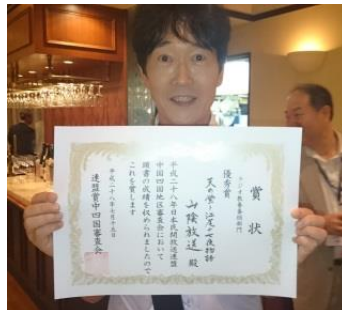 賞状
ラジオ教養番組部門
優秀賞
山陰放送 殿
平成二十八年日本民間放送連盟
中国四国地区審査会において
頭書の成績を収められましたので
これを賞します
平成二十八年六月十五日
連盟賞中四国審査会